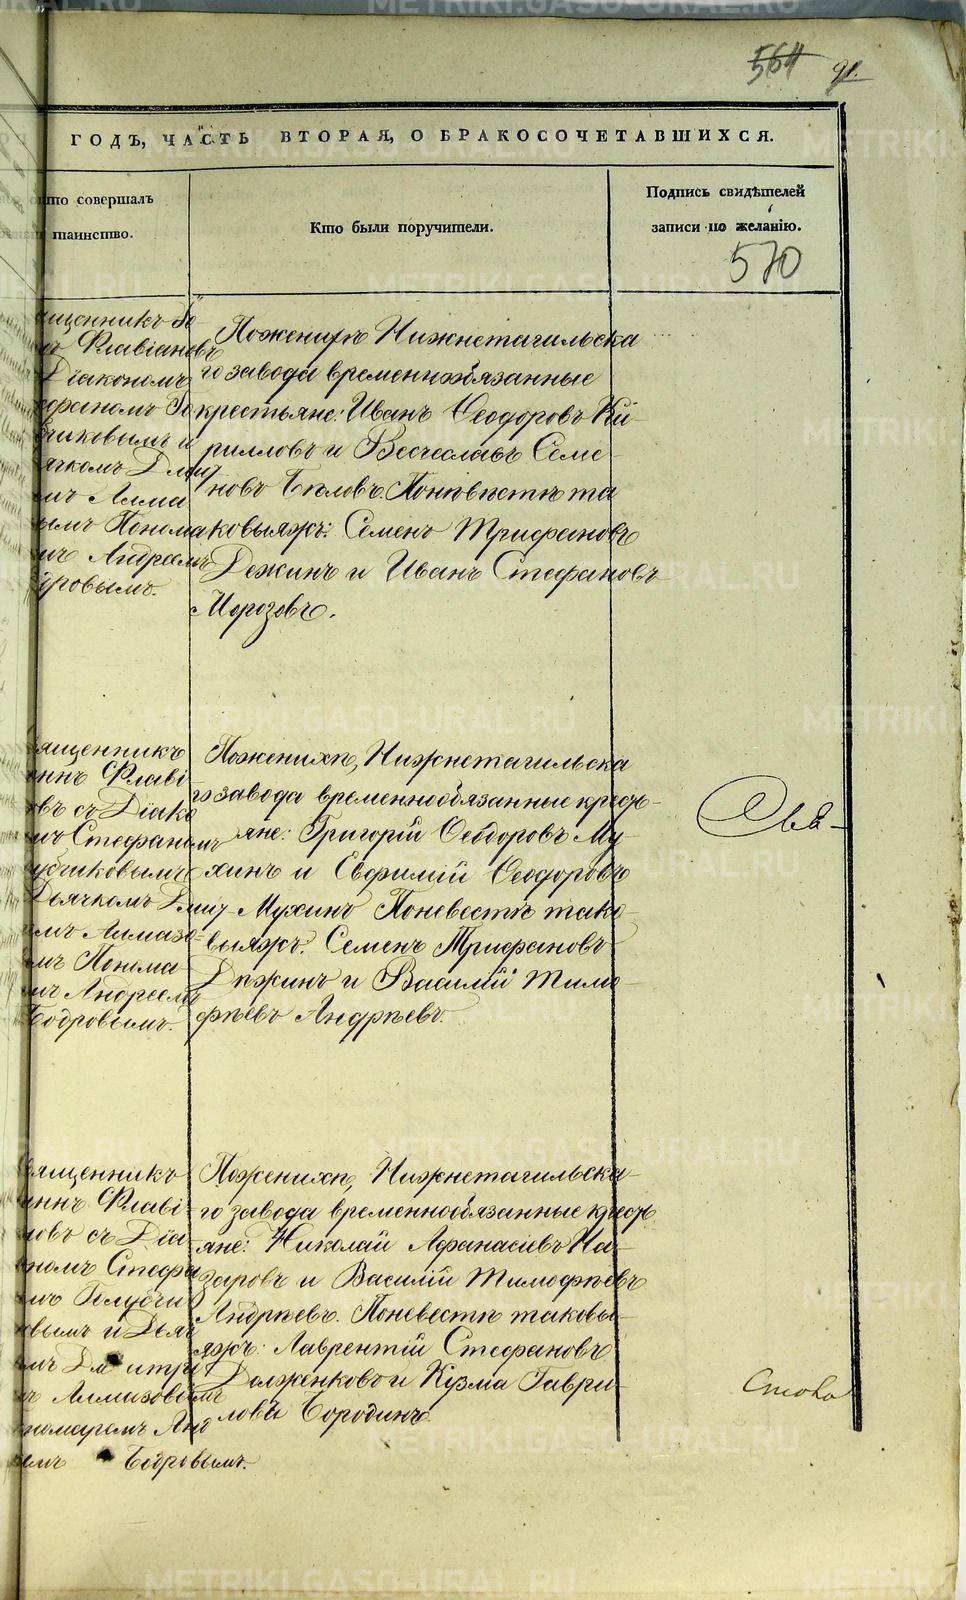 564 91.
ГОДЪ, ЧАСТЬ ВТОРАЯ, О БРАКОСОЧЕТАВШИХСЯ.
то совершалъ
таинство.
Кто были поручители.
Подпись свидѣтелей
записи по желанію.
570
ященникъ Іо-
Флавіановъ
Діакономъ
ефаномъ Го
бчиковымъ и
ячкомъ Дмит
мъ Алма
ымъ Понома
мъ Андреемъ
дровымъ.
Поженихѣ Нижнетагильска
го завода временнобязанные
крестьяне: Иванъ Ѳеодоровъ Ки-
рилловъ и Вечеславъ Семе-
новъ Бѣловъ. Поневѣстѣ та
ковыяжъ: Семенъ Трифановъ
Дежинъ и Иванъ Стефановъ
Морозовъ.
ященникъ
аннъ Флаві-
овъ съ Діако
мъ Стефаномъ
убчиковымъ
Дьячкомъ Дмит
емъ Алмазо-
мъ Понома
мъ Андреемъ
Бодровымъ.
Поженихѣ, Нижнетагильска
го завода временнообязанные кресть-
яне: Григорій Ѳеодоровъ Му-
хинъ и Евфимій Ѳеодоровъ
Мухинъ Поневестѣ тако-
выяжъ. Семенъ Трифановъ
Дѣжинъ и Василій Тимо-
фѣевъ Андрѣевъ.
Свя-
вященникъ
аннъ Флаві-
новъ съ Діа-
номъ Стефа
мъ Голубчи
овымъ и Дьяч
мъ Дмитрі
ъ Алмазовымъ
номаремъ Анд
емъ Бодровымъ.
Поженихѣ, Нижнетагильска-
го завода временнообязанные кресть
яне: Николай Афанасіевъ На-
заровъ и Василій Тимофѣевъ
Андрѣевъ. Поневестѣ таковы-
яжъ: Лаврентій Стефановъ
Долженково и Кузма Гаври-
ловъ Бородинъ.